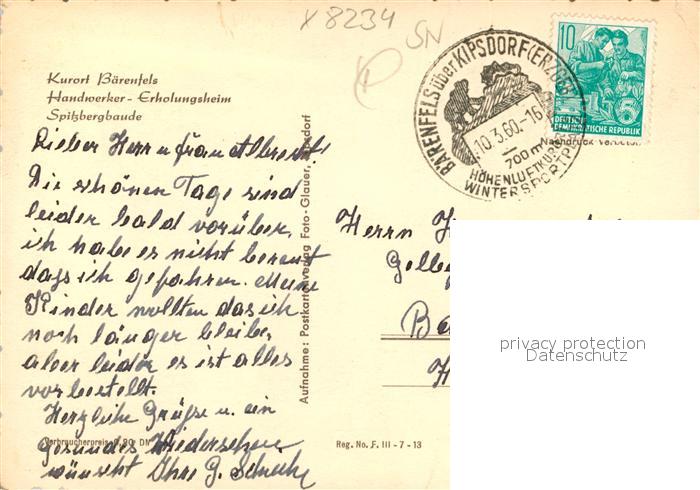 x 8234
SN
Kurort Bärenfels
Handwerker-Erholungsheim
Spitzbergbaude
Lieber Herr u. frau Albrecht!
Die schönen Tage sind
leider bald vorüber,
ich habe es nicht bereut
dass ich gefahren. Meine
Kinder wollten das ich
noch länger bleibe,
aber leider es ist alles
vorbestellt.
Herzliche Grüße u. ein
gesundes Wiedersehen
wünscht Ihre G.
Verbraucherpreis 0,20 DM
Aufnahme: Postkartenverlag Foto-Glauer,
BÄRENFELS über KIPSDORF (ERZGEB
10.3.60.-16
700 m
HÖHENLUFTKUR
WINTERSPORTPL
10
5
DEUTSCHE
DEMOKRATISCHE REPUBLIK
Nachdruck verboten
Herrn
Ba
H
privacy protection
Datenschutz
Reg. No. F. III - 7 - 13